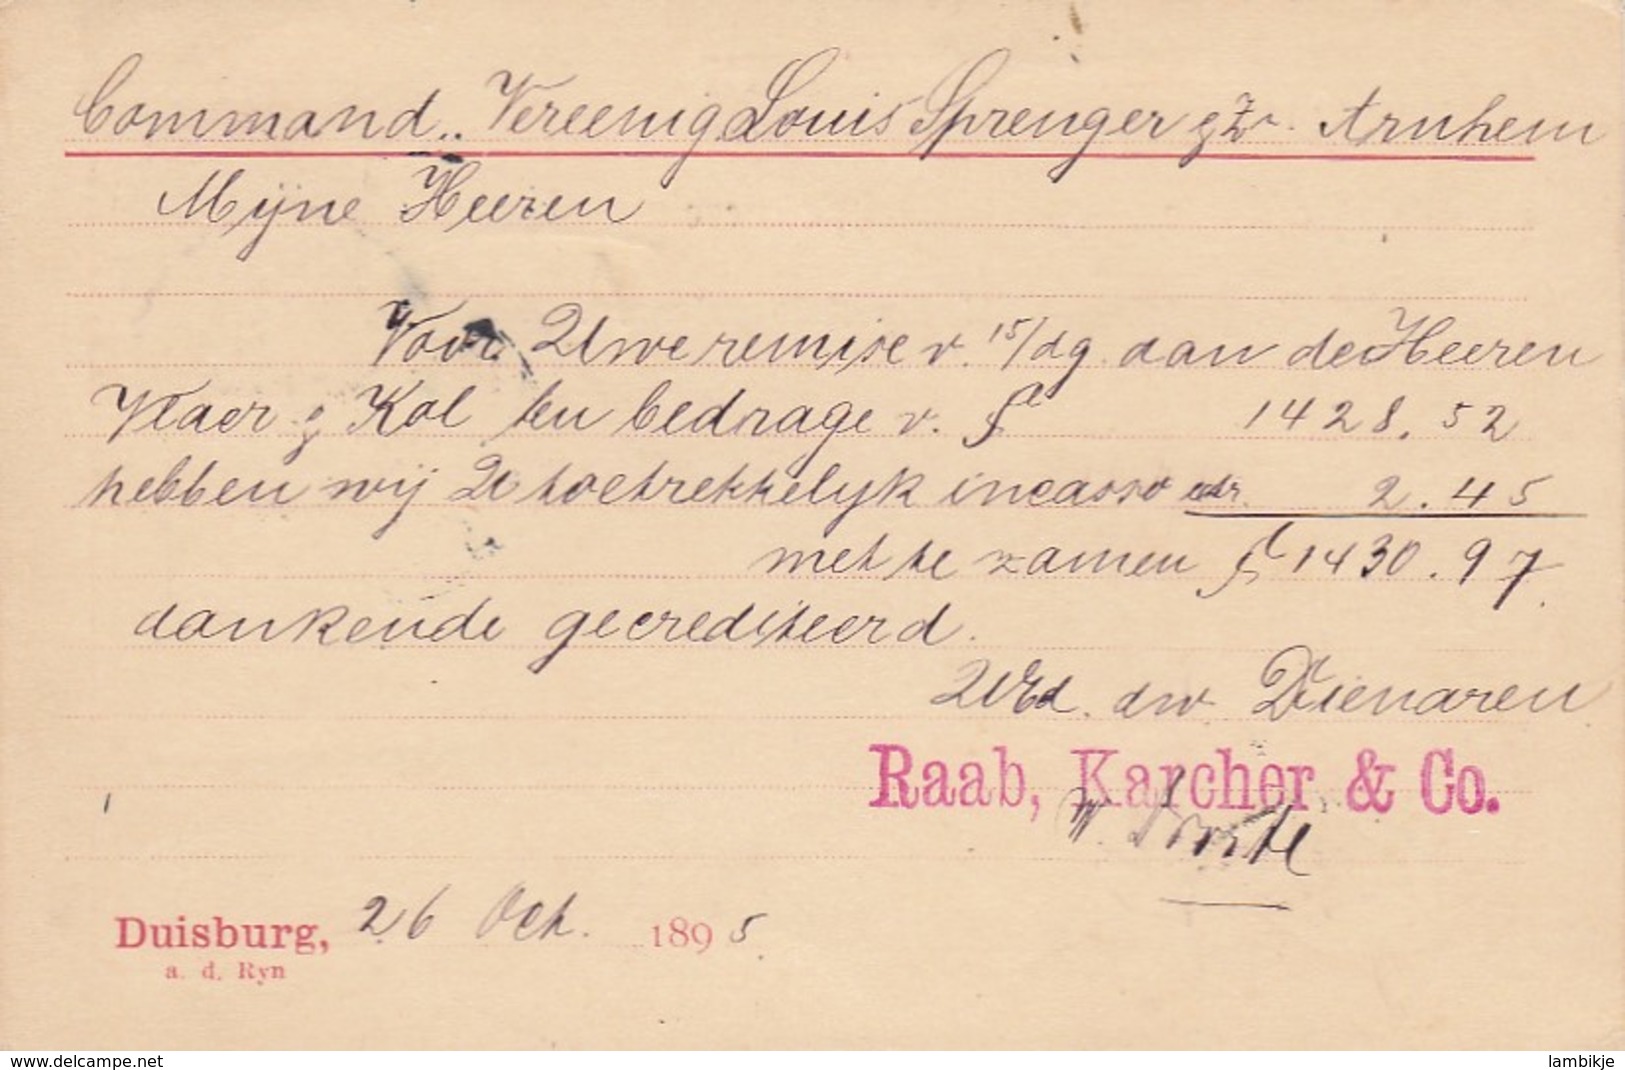 Command.. Vereenig Louis Sprenger & Zn. Arnhem
Mijne Heeren
Voor Uwe remise v. 15/dg. aan de Heeren
Vlaer & Kol ten bedrage v. f 1428.52
hebben wij U toetrekkelijk incasso 2.45
met te zamen f 1430.97
dankende gecrediteerd.
UEd. dw. Dienaren
Raab, Karcher & Co.
Duisburg, 26 Oct. 1895
a. d. Ryn
www.delcampe.net
lambikje